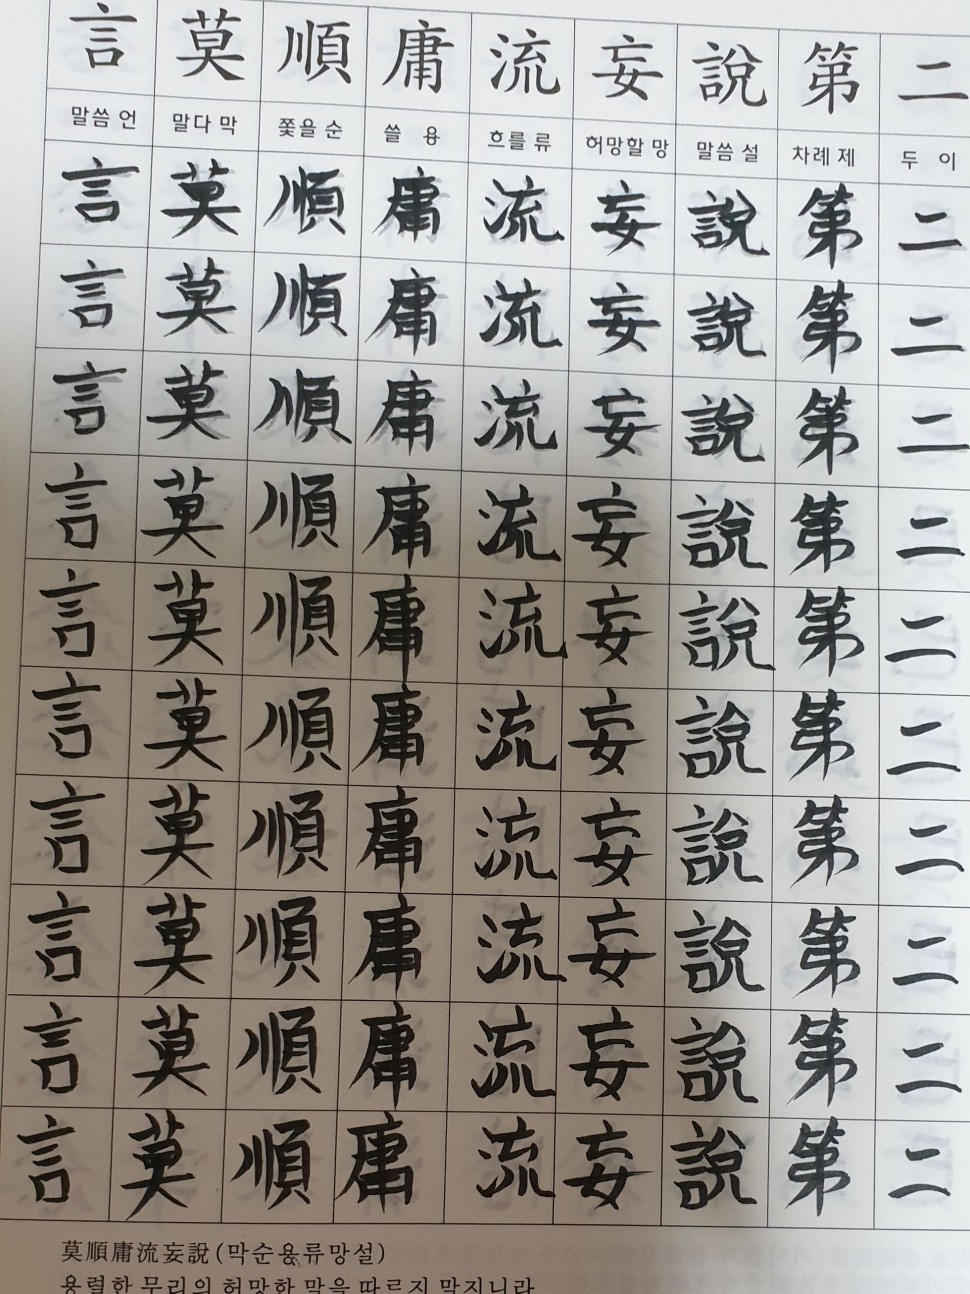 言 莫 順 庸 流 妄 說 第 二
말씀 언 말다 막 쫓을 순 쓸 용 흐를 류 허망할 망 말씀 설 차례 제 두 이
言 莫 順 庸 流 妄 說 第 二
言 莫 順 庸 流 妄 說 第 二
言 莫 順 庸 流 妄 說 第 二
言 莫 順 庸 流 妄 說 第 二
言 莫 順 庸 流 妄 說 第 二
言 莫 順 庸 流 妄 說 第 二
言 莫 順 庸 流 妄 說 第 二
言 莫 順 庸 流 妄 說 第 二
言 莫 順 庸 流 妄 說 第 二
言 莫 順 庸 流 妄 說 第 二
莫順庸流妄說(막순용류망설)
용렬한 무리의 허망한 말을 따르지 말지니라